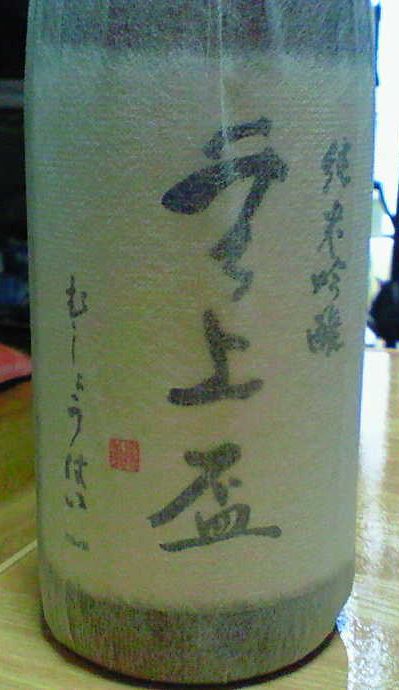 純米吟醸
無上盃
むしょうはい